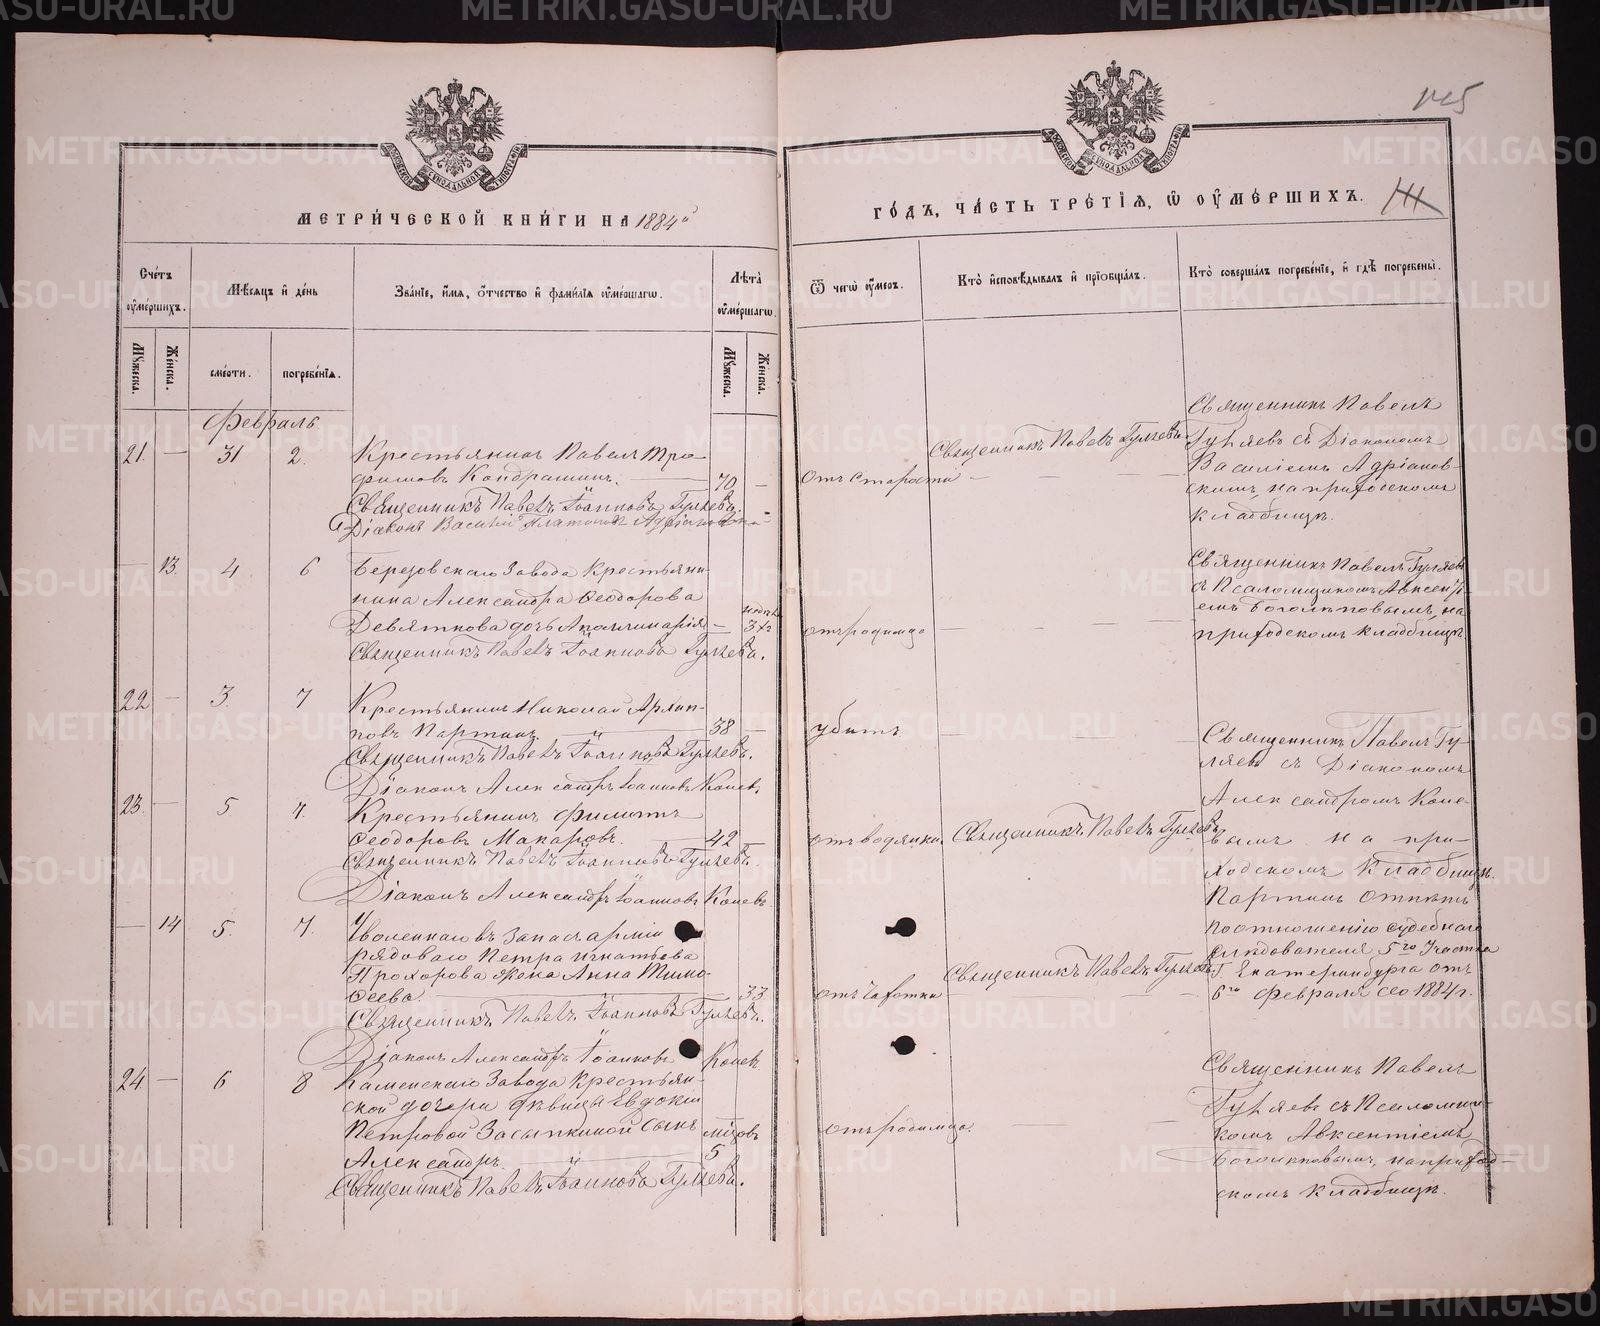 МЕТРИЧЕСКОЙ КНИГИ НА 1884й
Счетъ умершихъ.
Мѣсяцъ и день
Званіе, имя, отчество и фамилія умершагѡ.
Лѣта умершагѡ.
Мужеска.
Женска.
смерти.
погребенія.
Мужеска.
Женска.
Февраль
21. — 31 2. Крестьянинъ Павелъ Тро-
фимовъ Кондрашинъ. — 70 —
Священникъ Павелъ Іоанновъ Гуляевъ.
Діаконъ Василій Платоновъ Адріановскій
— 13. 4 6 Березовскаго Завода Крестьяни-
нина Александра Ѳеодорова
Девяткова дочь Аполлинарія — 3½
Священникъ Павелъ Іоанновъ Гуляевъ.
22 — 3. 7 Крестьянинъ Николай Архип-
повъ Партинъ. — 38 —
Священникъ Павелъ Іоанновъ Гуляевъ.
Діаконъ Александръ Іоанновъ Коневъ.
23. — 5 7. Крестьянинъ Филиппъ
Ѳеодоровъ Макаровъ. — 42 —
Священникъ Павелъ Іоанновъ Гуляевъ.
Діаконъ Александръ Іоанновъ Коневъ
— 14 5. 7. Уволеннаго въ Запасъ арміи
рядоваго Петра Игнатьева
Прохорова жена Анна Тимо-
ѳеева — 33
Священникъ Павелъ Іоанновъ Гуляевъ.
Діаконъ Александръ Іоанновъ Коневъ
24. — 6 8 Каменскаго Завода Крестьян-
ской дочери дѣвицы Евдокіи
Петровой Засыпкиной сынъ мѣсцовъ
Александръ. — 5
Священникъ Павелъ Іоанновъ Гуляевъ.
125
ГОДЪ, ЧАСТЬ ТРЕТІЯ, Ѡ УМЕРШИХЪ.
Ѿ чегѡ умеръ.
Кто исповѣдывалъ и пріобщалъ.
Кто совершалъ погребеніе, и гдѣ погребены.
отъ старости
Священникъ Павелъ Гуляевъ
Священникъ Павелъ
Гуляевъ съ Діакономъ
Василіемъ Адріанов-
скимъ, на приходскомъ
кладбищѣ.
отъ родимца
Священникъ Павелъ Гуляевъ
съ Псаломщикомъ Авксенті-
емъ Боголѣповымъ, на
приходскомъ кладбищѣ
убитъ
отъ водянки.
Священникъ Павелъ Гуляевъ
отъ чахотки
Священникъ Павелъ Гуляевъ
Священникъ Павелъ Гу-
ляевъ съ Діакономъ
Александромъ Коне-
вымъ на при-
ходскомъ Кладбищѣ.
Партинъ отпѣтъ
по отношенію судебнаго
слѣдователя 5го Участка
г. Екатеринбурга отъ
6го Февраля сего 1884 г.
отъ родимца.
Священникъ Павелъ
Гуляевъ съ Псаломщи-
комъ Авксентіемъ
Боголѣповымъ, на приход-
скомъ кладбищѣ.
METRIKI.GASO-URAL.RU